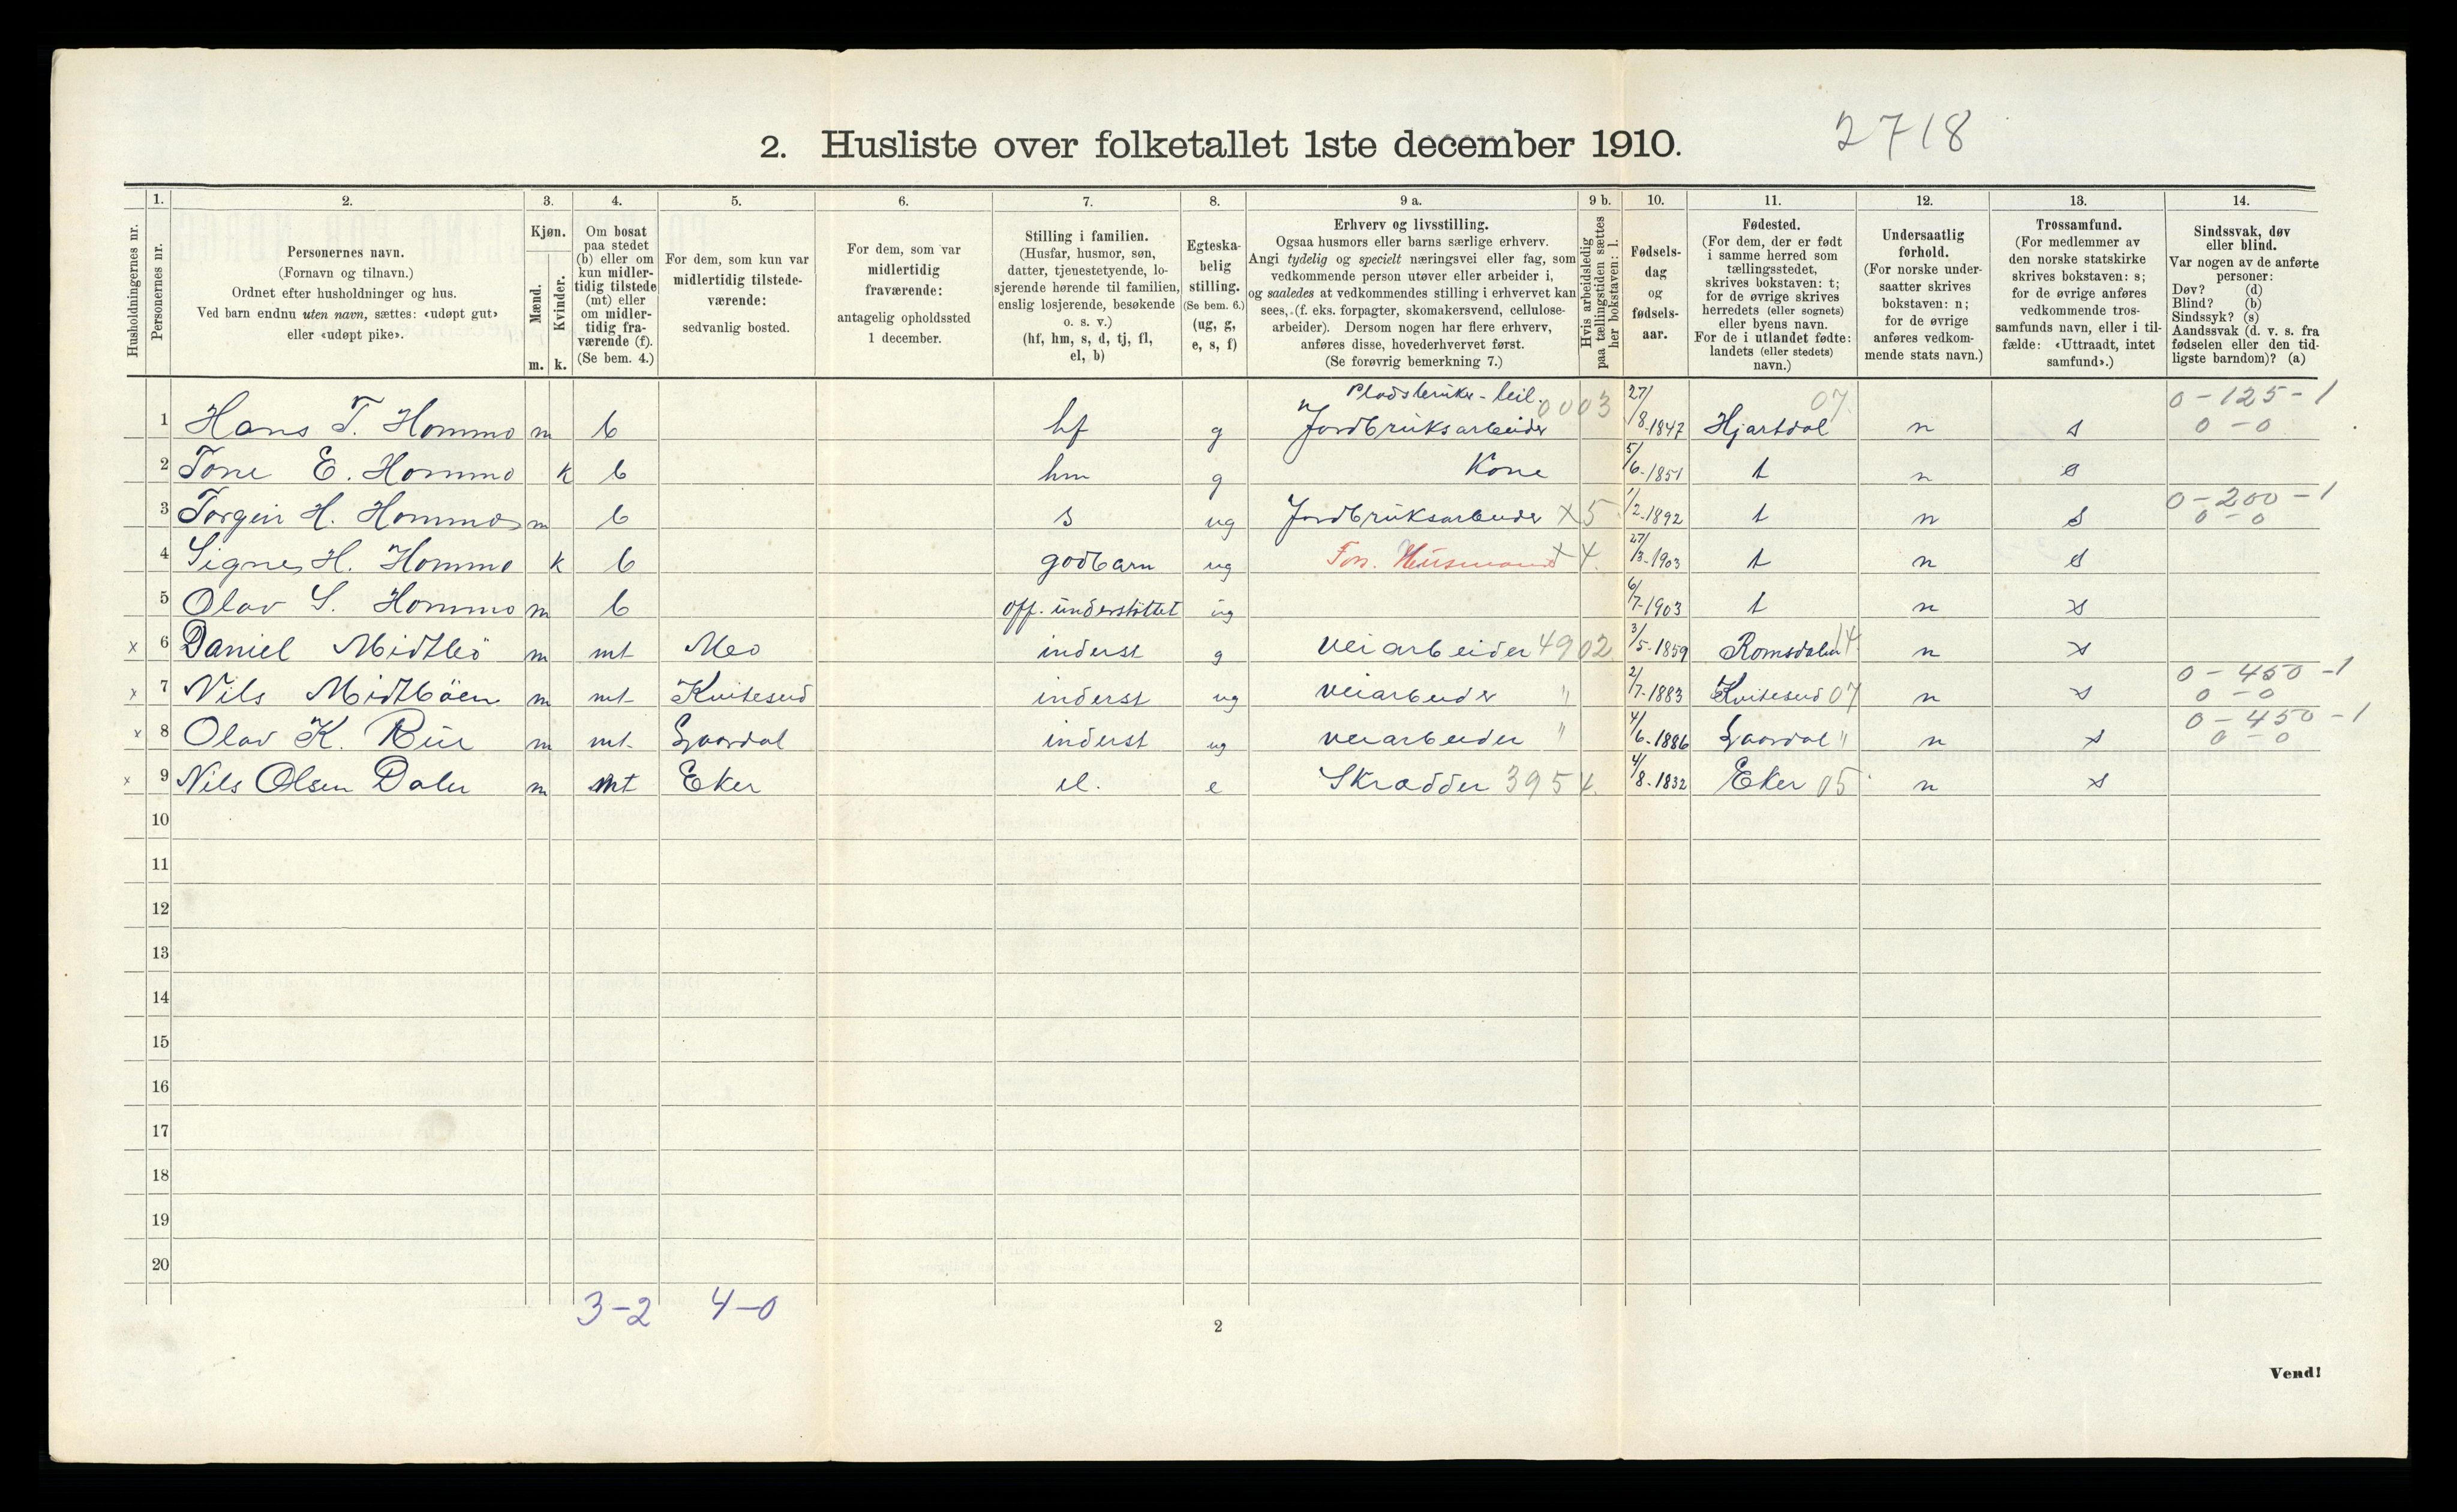 2. Husliste over folketallet 1ste december 1910. 2718
1. 2. 3. 4. 5. 6. 7. 8. 9 a. 9 b. 10. 11. 12. 13. 14.
Husholdningernes nr.
Personernes nr.
Personernes navn.
(Fornavn og tilnavn.)
Ordnet efter husholdninger og hus.
Ved barn endnu uten navn, sættes: «udøpt gut»
eller «udøpt pike».
Kjøn.
Mænd.
Kvinder.
m. k.
Om bosat
paa stedet
(b) eller om
kun midler-
tidig tilstede
(mt) eller
om midler-
tidig fra-
værende (f).
(Se bem. 4.)
For dem, som kun var
midlertidig tilstede-
værende:
sedvanlig bosted.
For dem, som var
midlertidig
fraværende:
antagelig opholdssted
1 december.
Stilling i familien.
(Husfar, husmor, søn,
datter, tjenestetyende, lo-
sjerende hørende til familien,
enslig losjerende, besøkende
o. s. v.)
(hf, hm, s, d, tj, fl,
el, b)
Egteska-
belig
stilling.
(Se bem. 6.)
(ug, g,
e, s, f)
Erhverv og livsstilling.
Ogsaa husmors eller barns særlige erhverv.
Angi tydelig og specielt næringsvei eller fag, som
vedkommende person utøver eller arbeider i,
og saaledes at vedkommendes stilling i erhvervet kan
sees, (f. eks. forpagter, skomakersvend, cellulose-
arbeider). Dersom nogen har flere erhverv,
anføres disse, hovederhvervet først.
(Se forøvrig bemerkning 7.)
Hvis arbeidsledig
paa tællingstiden sættes
her bokstaven: l.
Fødsels-
dag
og
fødsels-
aar.
Fødested.
(For dem, der er født
i samme herred som
tællingsstedet,
skrives bokstaven: t;
for de øvrige skrives
herredets (eller sognets)
eller byens navn.
For de i utlandet fødte:
landets (eller stedets)
navn.)
Undersaatlig
forhold.
(For norske under-
saatter skrives
bokstaven: n;
for de øvrige
anføres vedkom-
mende stats navn.)
Trossamfund.
(For medlemmer av
den norske statskirke
skrives bokstaven: s;
for de øvrige anføres
vedkommende tros-
samfunds navn, eller i til-
fælde: «Uttraadt, intet
samfund».)
Sindssvak, døv
eller blind.
Var nogen av de anførte
personer:
Døv? (d)
Blind? (b)
Sindssyk? (s)
Aandssvak (d. v. s. fra
fødselen eller den tid-
ligste barndom)? (a)
Pladsbruker - leil. 0003 07 0-125-1
1 Hans T. Hommo m b hf g Jordbruksarbeider 27/8-1847 Hjartdal n s 0-0
2 Tone E. Hommo k b hm g Kone 5/6-1851 t n s
0-200-1
3 Torgeir H. Hommo m b s ug Jordbruksarbeider x5 1/2-1892 t n s 0-0
4 Signe H. Hommo k b godbarn ug Fors. Husmand x4 27/3-1903 t n s
5 Olav S. Hommo m b off. understöttet ug 6/7-1903 t n s
x 6 Daniel Midtbö m mt Meo inderst g veiarbeider 4902 3/5-1859 Romsdalen 14 n s
0-450-1
x 7 Nils Midtböen m mt Kviteseid inderst ug veiarbeider " 2/7-1883 Kviteseid 07 n s 0-0
0-450-1
x 8 Olav K. Rui m mt Laardal inderst ug veiarbeider " 4/6-1886 Laardal " n s 0-0
x 9 Nils Olsen Dalen m mt Eker el. e Skrædder 3954 4/8-1832 Eker 05 n s
10
11
12
13
14
15
16
17
18
19
20
3-2 4-0
2
Vend!